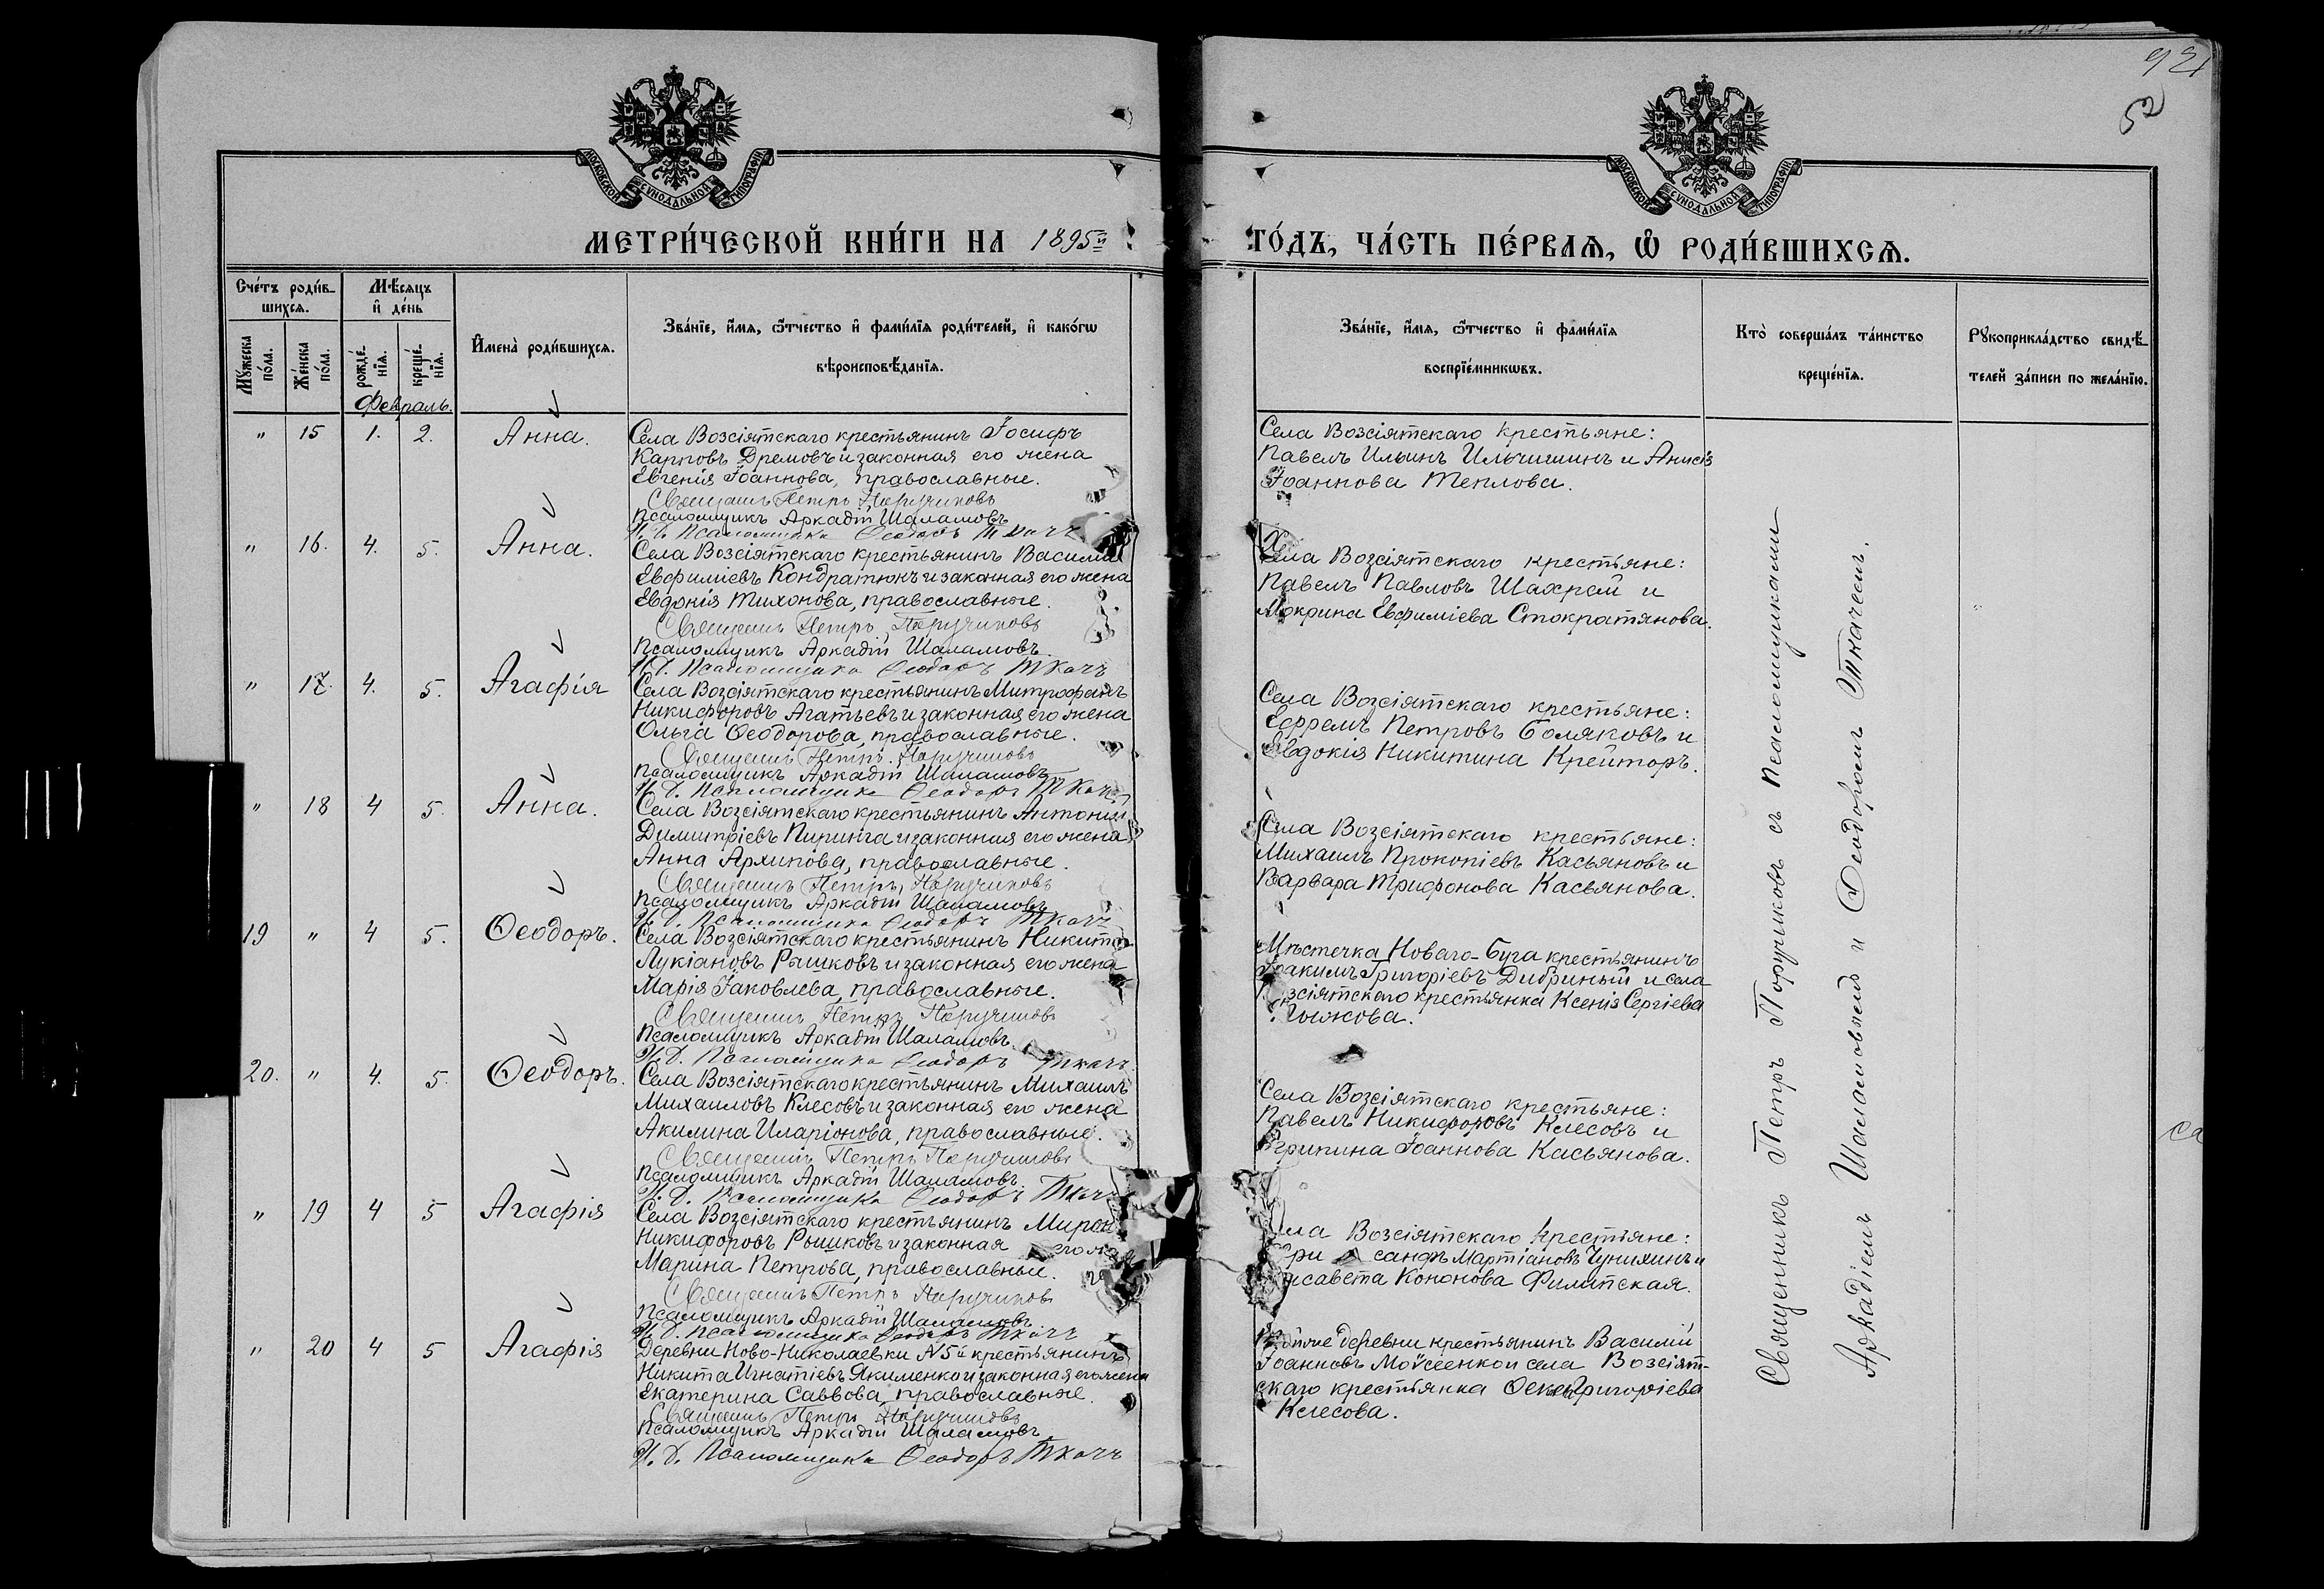 92
52
МОСКОВСКОЙ СУНОДАЛЬНОЙ ТИПОГРАФІИ
МОСКОВСКОЙ СУНОДАЛЬНОЙ ТИПОГРАФІИ
МЕТРИ́ЧЕСКОЙ КНИ́ГИ НА 1895й
ГО́ДЪ, ЧА́СТЬ ПЕ́РВАѦ, Ѡ РОДИ́ВШИХСѦ.
Сче́тъ роди́в-
шихсѧ.
Мꙋ́жеска по́ла.
Же́нска по́ла.
Мѣ́сѧцъ
и҆ де́нь
рожде́-нїѧ.
креще́-нїѧ.
Февраль.
И҆мена̀ роди́вшихсѧ.
Зва́нїе, и҆́мѧ, ѻ҆́тчество и҆ фами́лїѧ роди́телей, и҆ како́гѡ
вѣроисповѣ́данїѧ.
Зва́нїе, и҆́мѧ, ѻ҆́тчество и҆ фами́лїѧ
воспрїе́мникѡвъ.
Кто̀ соверша́лъ та́инство
креще́нїѧ.
Рꙋкоприкла́дство свидѣ́-
телей за́писи по жела́нїю.
" 15 1. 2. Анна.
Села Возсіятскаго крестьянинъ Іосифъ
Карповъ Дремовъ и законная его жена
Евгенія Іоаннова, православные.
Священникъ Петръ Поручиковъ
Псаломщикъ Аркадій Шаламовъ
И. д. Псаломщика Ѳеодоръ Ткачъ
Села Возсіятскаго крестьяне:
Павелъ Ильинъ Ильчишинъ и Анисія
Іоаннова Теплова.
" 16. 4. 5. Анна.
Села Возсіятскаго крестьянинъ Василій
Евфиміевъ Кондратюкъ и законная его жена
Евдокія Тихонова, православные.
Священникъ Петръ Поручиковъ
Псаломщикъ Аркадій Шаламовъ.
И. д. Псаломщика Ѳеодоръ Ткачъ
Села Возсіятскаго крестьяне:
Павелъ Павловъ Шахрай и
Мокрина Евфиміева Стократянова.
" 17. 4. 5. Агафія
Села Возсіятскаго крестьянинъ Митрофанъ
Никифоровъ Агатьевъ и законная его жена
Ольга Ѳеодорова, православные.
Священникъ Петръ Поручиковъ
Псаломщикъ Аркадій Шаламовъ
И. д. Псаломщика Ѳеодоръ Ткачъ
Села Возсіятскаго крестьяне:
Ефремъ Петровъ Боляковъ и
Евдокія Никитина Крейторъ.
" 18 4 5. Анна.
Села Возсіятскаго крестьянинъ Антоній
Димитріевъ Пиринга и законная его жена
Анна Архипова, православные.
Священникъ Петръ Поручиковъ
Псаломщикъ Аркадій Шаламовъ
И. д. Псаломщика Ѳеодоръ Ткачъ
Села Возсіятскаго крестьяне:
Михаилъ Прокопіевъ Касьяновъ и
Варвара Трифонова Касьянова.
19 " 4 5. Ѳеодоръ.
Села Возсіятскаго крестьянинъ Никита
Лукіановъ Рышковъ и законная его жена
Марія Іаковлева, православные.
Священникъ Петръ Поручиковъ
Псаломщикъ Аркадій Шаламовъ
И. д. Псаломщика Ѳеодоръ Ткачъ.
Мѣстечка Новаго-Буга крестьянинъ
Іоакимъ Григоріевъ Дибриный и села
зсіятскаго крестьянка Ксенія Сергіева
20. " 4. 5. Ѳеодоръ.
Села Возсіятскаго крестьянинъ Михаилъ
Михаиловъ Клесовъ и законная его жена
Акилина Иларіонова, православные.
Священникъ Петръ Поручиковъ
Псаломщикъ Аркадій Шаламовъ.
И. д. Псаломщика Ѳеодоръ Ткачъ
Села Возсіятскаго крестьяне:
Павелъ Никифоровъ Клесовъ и
Агрипина Іоаннова Касьянова.
" 19 4 5 Агафія
Села Возсіятскаго крестьянинъ Мирон
Никифоровъ Рышковъ и законная его
Марина Петрова, православные.
Священникъ Петръ Поручиковъ
Псаломщикъ Аркадій Шаламовъ
И. д. Псаломщика Ѳеодоръ Ткачъ
ела Возсіятскаго крестьяне:
санфъ Мартіановъ Чунихинъ и
исавета Кононова Филитская.
" 20 4 5 Агафія
Деревни Ново-Николаевки №5й крестьянинъ
Никита Игнатіевъ Якименко и законная его жена
Екатерина Саввова, православные.
Священникъ Петръ Поручиковъ
Псаломщикъ Аркадій Шаламовъ
И. д. Псаломщика Ѳеодоръ Ткачъ
деревни крестьянинъ Василій
Іоанновъ Моѵсеенко и села Возсіят-
скаго крестьянка Григоріева
Клесова.
Священникъ Петръ Поручиковъ съ псаломщиками
Аркадіемъ Шаламовымъ и Ѳеодоромъ Ткачемъ.
са